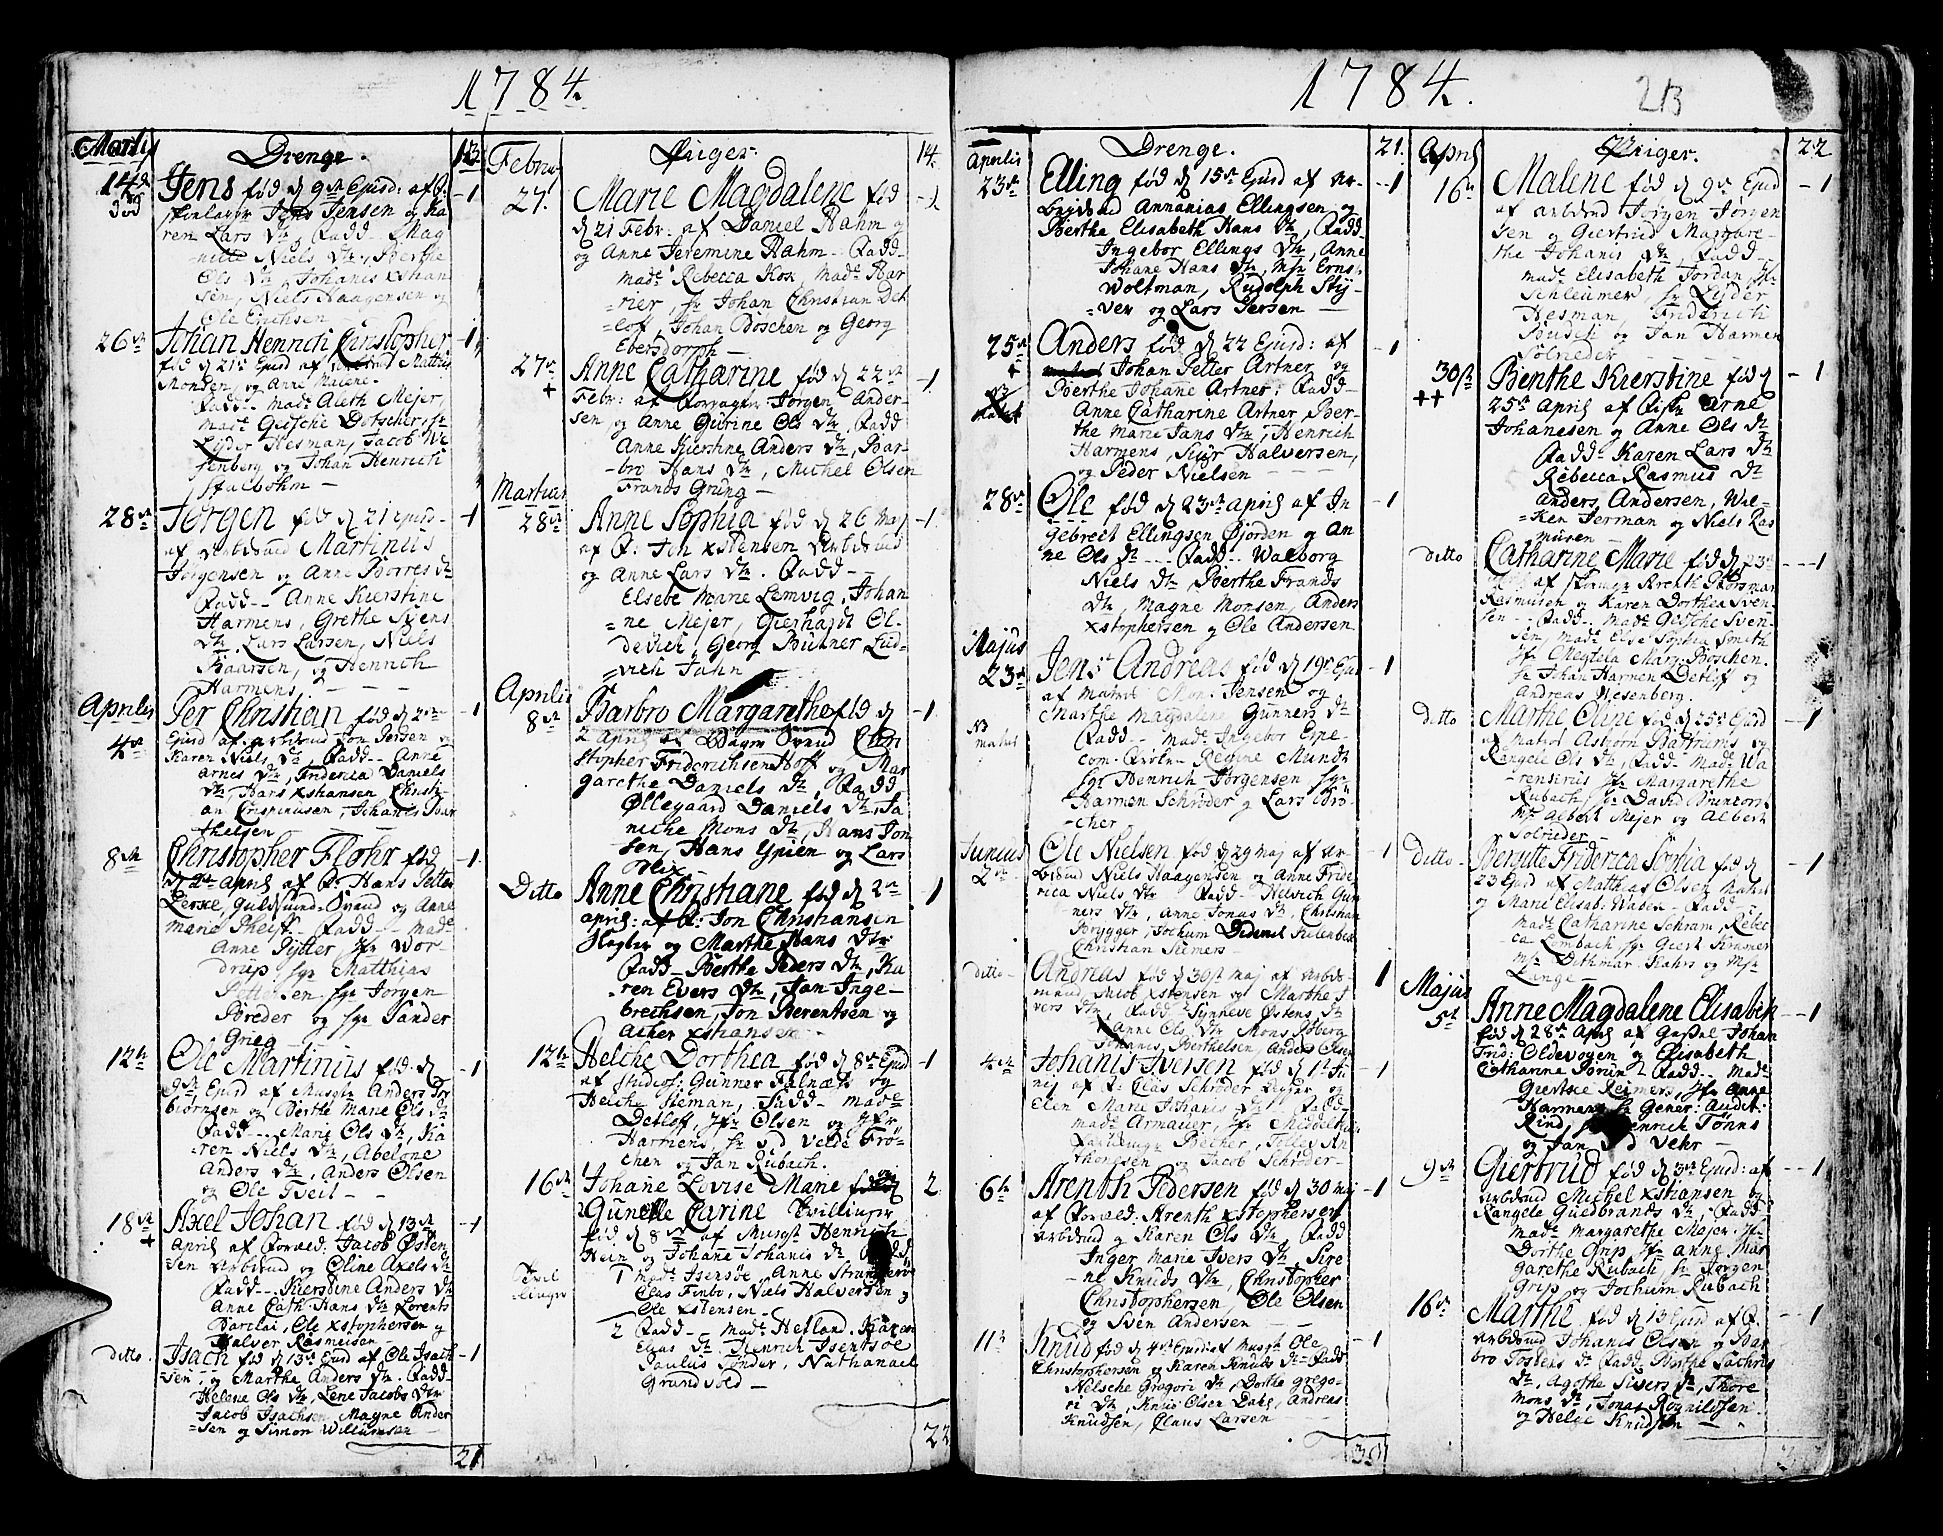 1784.
Martij Drenge. 13
14de Jens fød d 9de Ejusd: af -1
Jens Jensen og Ka
ren Lars Dtr, Fadd- Mag
nitte Niels Dtr, Berthe
Ols Dtr, Johanis xstian
sen, Niels Haagensen og
Ole Erichsen
26de Johan Henrich Christopher -1
fød d 21de Ejusd af Mattis
Monsen og Anne Malene.
Fadd- made Aleth Mejer,
made Gesche Dotscher, Hr
Lyder Hesman, Jacob We
senberg og Johan Henrich
Stalbohm -
28de Jørgen fød d 21 Ejusd- -1
af Arbdsmd Martinus
Jørgensen og Anne Borres Dtr
Fadd-- Anne Kierstine
Harmens, Grethe Svens
Dtr, Lars Larsen, Niels
Baarsen, og Henrich
Harmens, - - -
Aprilis Per Christian fød d 2de -1
4de Ejusd af Arbdsmd Jon Persen og
Karen Niels Dtr, Fadd-- Anne
Arnes Dtr, Friderica Daniels
Dtr, Hans Xstiansen Christi-
an Crispinusen, Johanis Bar
thelsen -
8de Christopher Flohr fød -1.
d 2de April af Hans Petter
Lerke, Guldsmd-Svend og Anne
Marie Pheiff - Fadd-- made
Anne Pytter Jfr Wor-
drup, Hr Matthias
Pettersen Hr Jørgen
Brøder og Hr Sander
Grieg -
12te Ole Martinius fød d -1
9de Ejusd af Musqtr Anders Tor
biørnsen og Berthe Marie Ols Dtr
Fadd--. Marie Ols Dtr, Ka
ren Niels Dtr, Abelone
Anders Dtr, Anders Olsen
og Ole Tveit - -
18de + Axel Johan fød d 13de -1
April af Jacob Østen
sen Arbdsmd og Oline Axels Dtr
Fadd--. Kierstine Anders Dtr
Anne Cath: Hans Dtr Lorents
Barclai, Ole Xstophersen og
Halver Rasmusen -
ditto. Isach fød d 13de Ejusd af Ole Isach -1
sen - og Marthe Anders Dtr. Fadd-
Helene Ols Dtr, Lene Jacobs Dtr
Jacob Isachsen, Magne Ander
=sen og Simon Willumsen -
21
Febru Piger. 14.
27. Marie Magdalene fød -1.
d 21 Febr: af Daniel Rahm og
og Anne Jeremine Rahm - Fadd-
made Rebecca Kox made Bar
rier, Hr Johan Christian Det
=lof, Johan Boschen og Georg
Ebersdorph -
27de + Anne Catharine fød d 22de -1.
Febr: af Jørgen Ander-
sen og Anne Gurine Ols Dtr. Fadd
Anne Kierstine Anders Dtr, Bar-
-bro Hans Dtr, Michel Olsen
Frands Grung -
Martius
28de Anne Sophia fød d 26 Maj -1.
af Jen Xstensen Arbdsmd
og Anne Lars Dtr. Fadd--
Elsebe Marie Lemvig, Johan
=ne Mejer, Gierhardt Ol-
derich, Georg Büttner Lud-
=vich Jahn
Aprilis Barbro Margarethe fød d -1.
8de 2 April af Chri
stopher Friderichsen Hoff og Mar
garethe Daniels Dtr, Fadd
Øllegaard Daniels Dtr, Ja
niche Mons Dtr, Hans Jon
sen, Hans Ypien og Lars
Nix -
Ditto Anne Christiane fød d 2de -1
April: af Jon Christiansen
Hagler og Marthe Hans Dtr
Fadd- Berthe Peders Dtr, Ka
-ren Evers Dtr, Jan Inge-
brechsen, Jon Berentsen og
Acher xstiansen -
12te Helche Dorthea fød d 8de Ejusd -1
af Studios: Gunner Falnæs og
Helche Heman, Fadd- made
Detloff, Jfr Olsen og Jfr
Harmens, Hr v d Velde Frö-
chen og Jan Rubach.
16de Johane Lovise Marie og 2.
Gunelle Carine Tvillinger
fød d 8de af Musqt Henrich
Hein og Johane Johanis Dtr Fadd
1 made Isensøe Anne
Clas Finbo, Niels Halversen og
Ole Xstensen -
2 Fadd-- made Hefland, Karen
Elias Dtr. Henrich Isentsøe
Paulus Tønder, Nathanael
Grundsold -
22
1784. 213
Aprilis Drenge. 21.
23de Elling fød d 15de Ejusd af Ar- -1
bejdsmd Annanias Ellingsen og
Berthe Elisabeth Hans Dtr, Fadd-
Ingebor Ellings Dtr, Anne
Johane Hans Dtr, Mr Ernst
Woltman, Rudolph Sty-
=ver og Lars Persen -
25de + Anders fød d 22 Ejusd: af -1
Johan Petter Artner og
NB matrt Berthe Johane Artner, Fadd-
Anne Catharine Artner, Ber-
the Marie Jans Dtr, Henrich
Harmens, Siur Halversen,
og Peder Nielsen - -
28de Ole fød d 23de April af In -1
gebrect Ellingsen Bjorden og An
ne Ols Dtr --- Fadd-- Walborg
Niels Dtr, Berthe Frands
Dtr, Magne Monsen, Anders
xstophersen og Ole Andersen
Majus
23de Jens Andreas fød d 19de Ejus -1
af matrt Mon. Jensen og
NB matrt Marthe Magdalene Gunners Dtr
Fadd-- made Ingebor Espe-
com. Regine Mundt
Hr Henrich Jørgensen, Hr
Harmen Schröder og Lars Brö-
-cher -
Junius Ole Nielsen fød d 29 Maj af Ar -1
2de bdsmd Niels Haagensen og Anne Fride
rica Niels Dtr Fadd-- Helvich Gun
ners Dtr, Anne Jonas Dtr, Christian
Brygger, Jochum Didrich Fulenbek
Christian Siemers -
ditto- Andreas fød d 30st Maj af Arbds- 1
mand Jacob Xstensen og Marthe I
vers Dtr, Fadd- Synneve Østens Dtr
Anne Ols Dtr Mons Boberg
Johanis Berthelsen, Anders Olsen
4de Johanis Iversen fød d 1st Ju -1
nij af Clas Schrøder og
Elen Marie Johanis Dtr - Fadd-
made Armauer, Jfr Middelthun
Becher, Tilles An
thonesen og Jacob Schrøder-
6te Arenth Pedersen fød d 30 Maj -1
af Arenth xstophersen
Arbdsmd og Karen Ols Dtr, Fadd
Inger Marie Ivers Dtr Sire
-ne Knuds Dtr, Christopher
Christophersen, Ole Olsen
og Sven Andersen - -
11te Knud fød d 4de Ejusd af Musqt Ole -1
Christophersen og Karen Knuds Dtr- Fadd
Nelsche Gregori Dtr, Dorthe Grego-
ri Dtr, Knud Olsen Dahl, Andreas
Knudsen, Claus Larsen -
30
April Piger. 22
16de Malene fød d 9de Ejusd -1
af Arbdsmd Jørgen Jørgen
sen og Giertrud Margare-
the Johanis Dtr, Fadd--
made Elisabeth Jordan, Jfr
Schleumer, Hr Lyder
Hesman, Friderich
Büsch og Jan Harmen
Solrieder -
30st ++ Benthe Kierstine fød d -1
25de April af Arne
Johanesen og Anne Ols Dtr
Fadd- Karen Lars Dtr
Rebecca Rasmus Dtr
Anders Andersen, Wal-
=ken Jerman og Niels Ras
musen -
ditto Catharine Marie fød d 23de --1
af Arenth Korsman
Rasmusen og Karen Dorthea Sven
sen -- Fadd-- made Gesche Sven-
sen, made Else Sophia Smith
Jfr Megtela Marg: Boschen.
Hr Johan Harmen Detlof og
Andreas Wesenberg.
ditto Marthe Oline fød d 25de Ejusd -1
af Matros Asbjørn Battnings og
Rangele Ols Dtr, Fadd- made Wa
-rensirius Jfr Margarethe
Rubach, Hr David Brunton
Mr Albert Mejer og Albert
Solrieder -
ditto- Bergitte Friderica Sophia fød d -1
23 Ejusd af Matthias Olsen Matrt
og Marie Elisab: Waden - Fadd--
made Catharine Schram, Rebec
ca Lembach, Hr Giert Kramer
Mr Dithmar Kahrs og Mr
Lange -
Majus Anne Magdalene Elisabeth -1
5te fød d 28de April af Johan
Frid: Oldevogen og Elisabeth
Catharine Fadd-- made
Giertsee Reimers, Jfr Anne
Harmens, Hr Gener: Audit:
Rind, Henrich Tønns
og Jan v d Vehr -
9de Giertrud fød d 3de Ejusd: af -1
Arbdsmd Michel Xstiansen og
Rangele Guedbrands Dtr, Fadd-
made Margarethe Mejer Jfr
Dorthe Grip Jfr Anne Mar
garethe Rubach Hr Jørgen
Grip og Jochum Rubach
16de Marthe fød d 13 Ejusd af -1
Arbdsmd Johanis Olsen og Bar
bro Tostens Dtr Fadd- Berthe Zachris
Dtr, Agothe Sivers Dtr, Thore
Mons Dtr, Jonas Rognildsen
og Helge Knudsen -